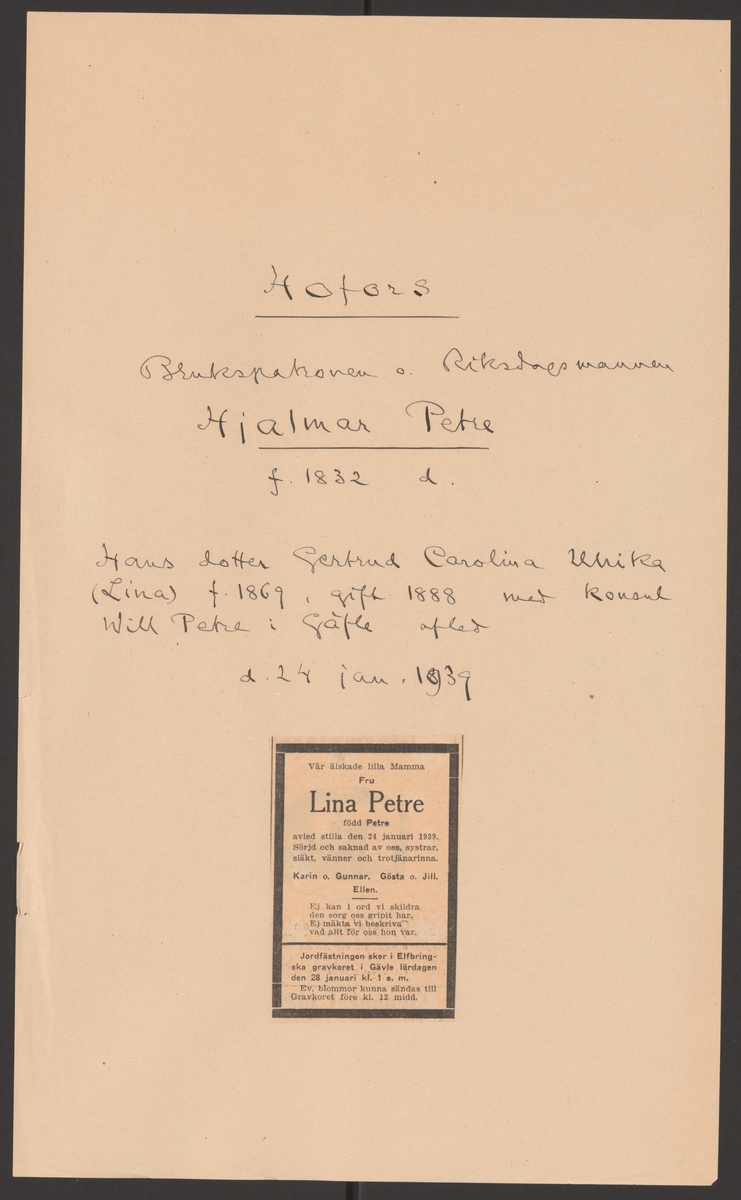 Hofors
Brukspatronen o. Riksdagsmannen
Hjalmar Petre
f. 1832 d.
Hans dotter Gertrud Carolina Ulrika
(Lina) f. 1869, gift 1888 med konsul
Will Petre i Gäfle afled
d. 24 jan. 1939
Vår älskade lilla Mamma
Fru
Lina Petre
född Petre
avled stilla den 24 januari 1939.
Sörjd och saknad av oss, systrar,
släkt, vänner och trotjänarinna.
Karin o. Gunnar. Gösta o. Jill.
Ellen.
Ej kan i ord vi skildra
den sorg oss gripit har.
Ej mäkta vi beskriva
vad allt för oss hon var.
Jordfästningen sker i Elfbring-
ska gravkoret i Gävle lördagen
den 28 januari kl. 1 e. m.
Ev. blommor kunna sändas till
Gravkoret före kl. 12 midd.